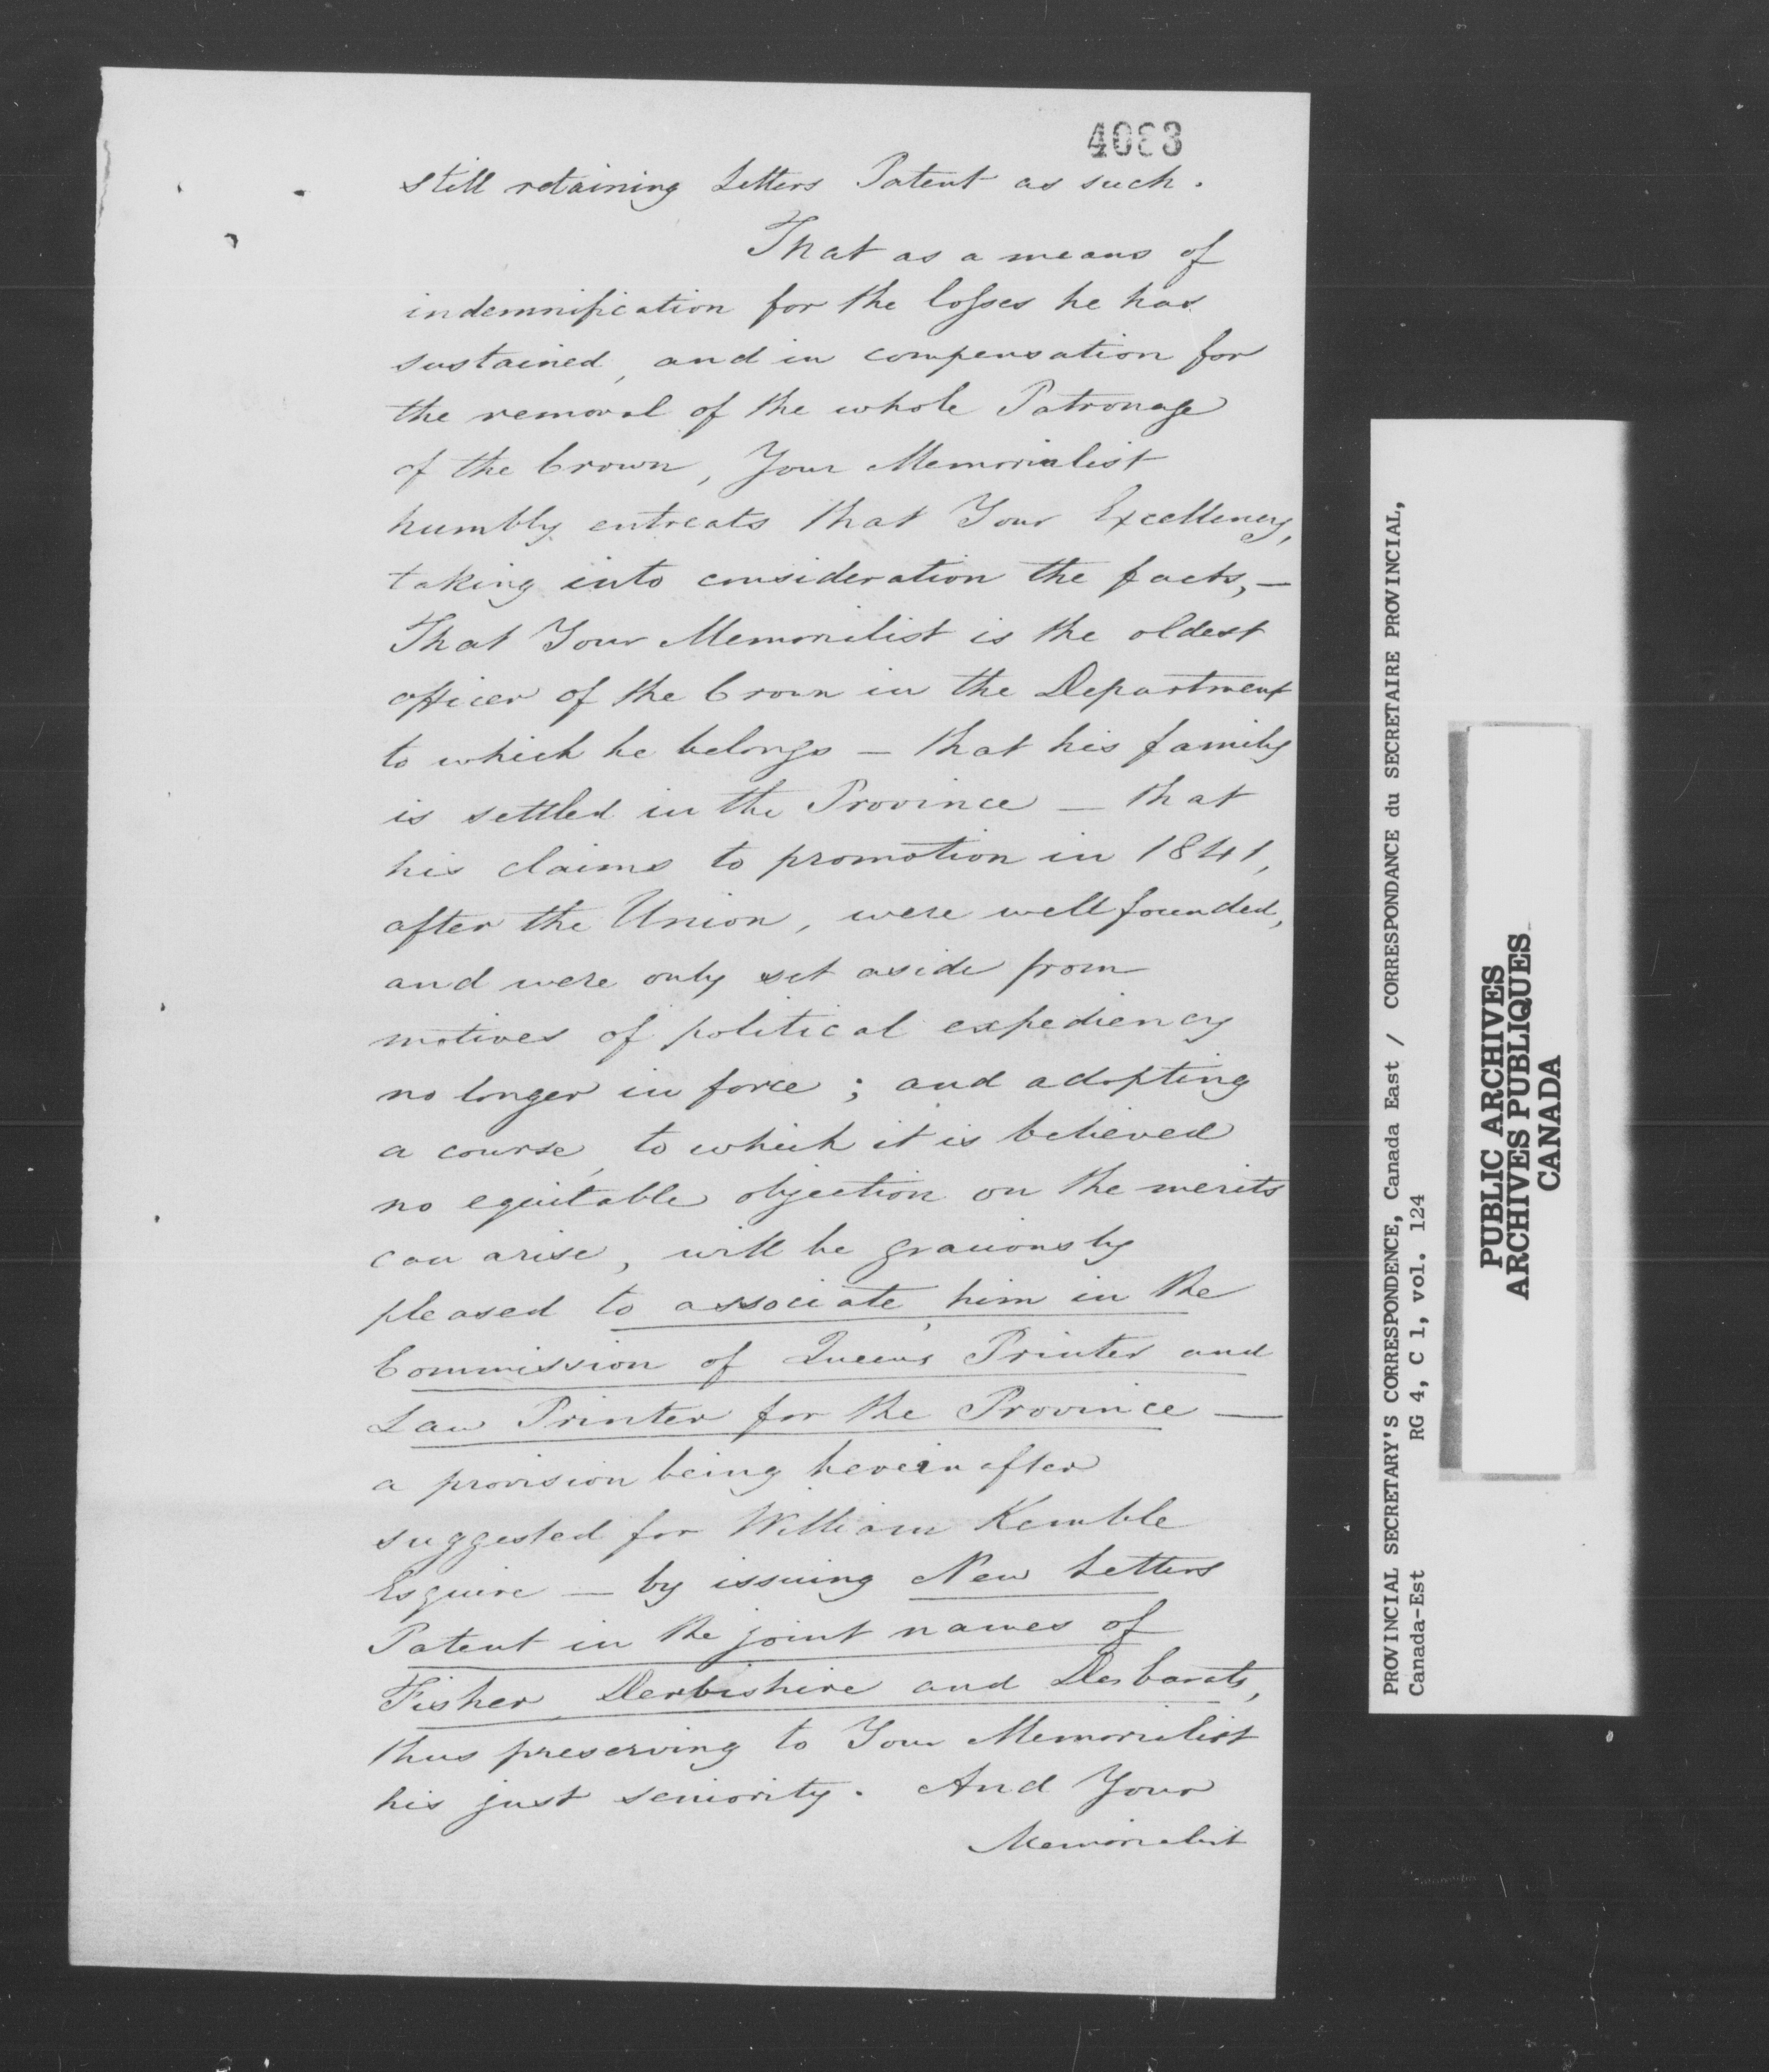 4083
still retaining Letters Patent as such.
That as a means of
indemnification for the losses he has
sustained, and in compensation for
the removal of the whole Patronage
of the Crown, Your Memorialist
humbly entreats that Your Excellency,
taking into consideration the facts,—
That Your Memorilist is the oldest
officer of the Crown in the Department
to which he belongs — that his family
is settled in the Province — that
his claims to promotion in 1841,
after the Union, were well founded,
and were only set aside from
motives of political expediency
no longer in force; and adopting
a course, to which it is believed
no equitable objection on the merits
can arise, will be graciously
pleased to associate him in the
Commission of Queen's Printer and
Law Printer for the Province —
a provision being hereinafter
suggested for William Kemble
Esquire — by issuing New Letters
Patent in the joint names of
Fisher, Derbishire and Desbarats,
thus preserving to Your Memorilist
his just seniority. And Your
Memorialist
PROVINCIAL SECRETARY'S CORRESPONDENCE, Canada East / CORRESPONDANCE du SECRETAIRE PROVINCIAL,
Canada-Est RG 4, C 1, vol. 124
PUBLIC ARCHIVES
ARCHIVES PUBLIQUES
CANADA